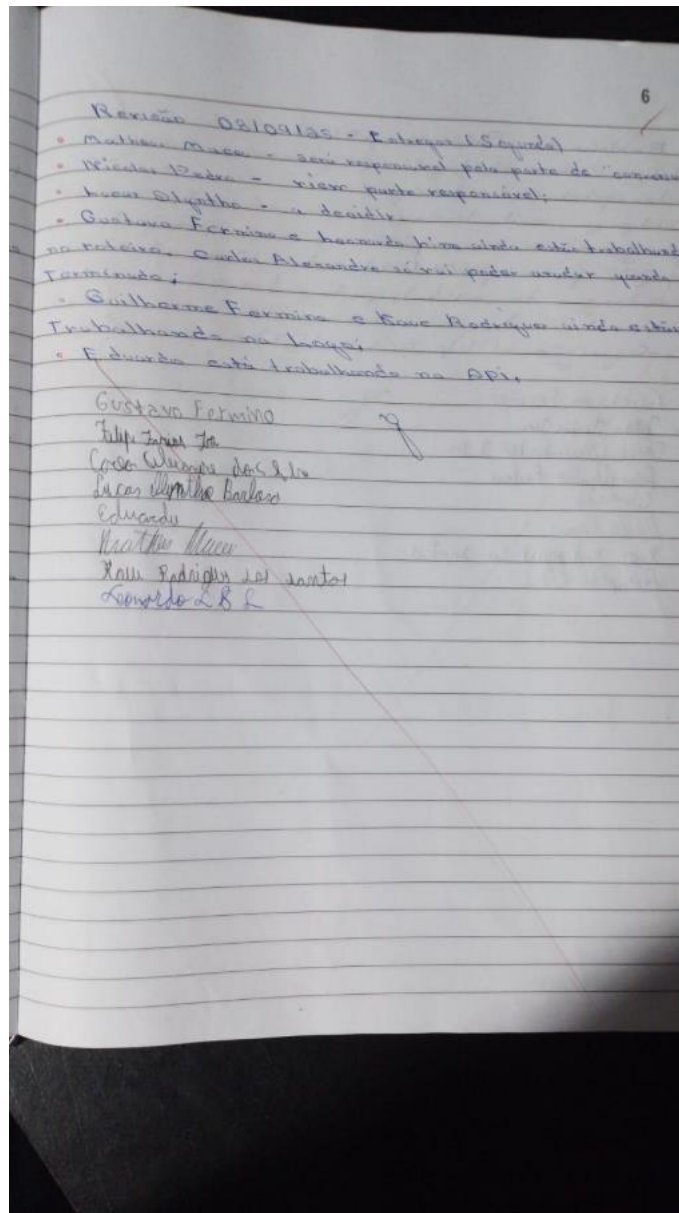 6
Revisão 08/09/25 - Entregas (Segunda)
• Matheus Maceu - será responsável pela parte de "
• Nicolas Pedro - nessa parte responsável;
• Lucas Olyntho - a decidir.
• Gustavo Fermino e Leonardo ainda estão trabalhando
no roteiro. Carlos Alexandre só vai poder ajudar quando
Terminado;
• Guilherme Fermino e Rodrigues ainda estão
Trabalhando na Logo;
• Eduardo está trabalhando na API.
Gustavo Fermino
Filipe Farias
Carlos Alexandre da Silva
Lucas Olyntho Barbosa
Eduardo
Matheus Maceu
Rodrigues dos santos
Leonardo L B L